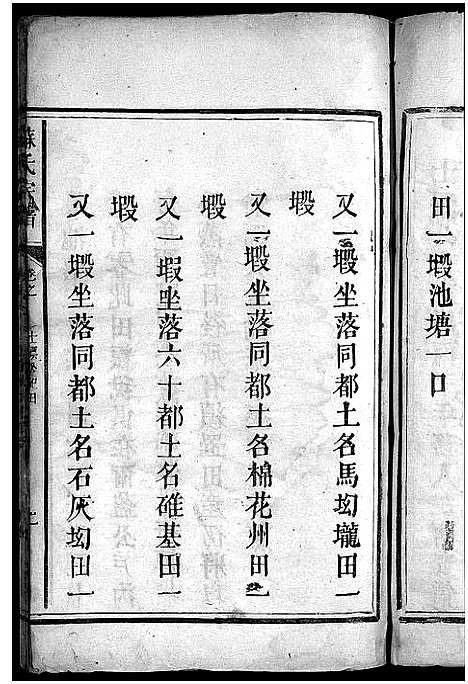 田一塅池塘一口
又一塅坐落同都土名馬㘭壠田一
塅
又一塅坐落同都土名棉花州田一
塅
又一塅坐落六十都土名碓基田一
塅
又一塅坐落同都土名石灰㘭田一
蘇氏宗譜
卷之